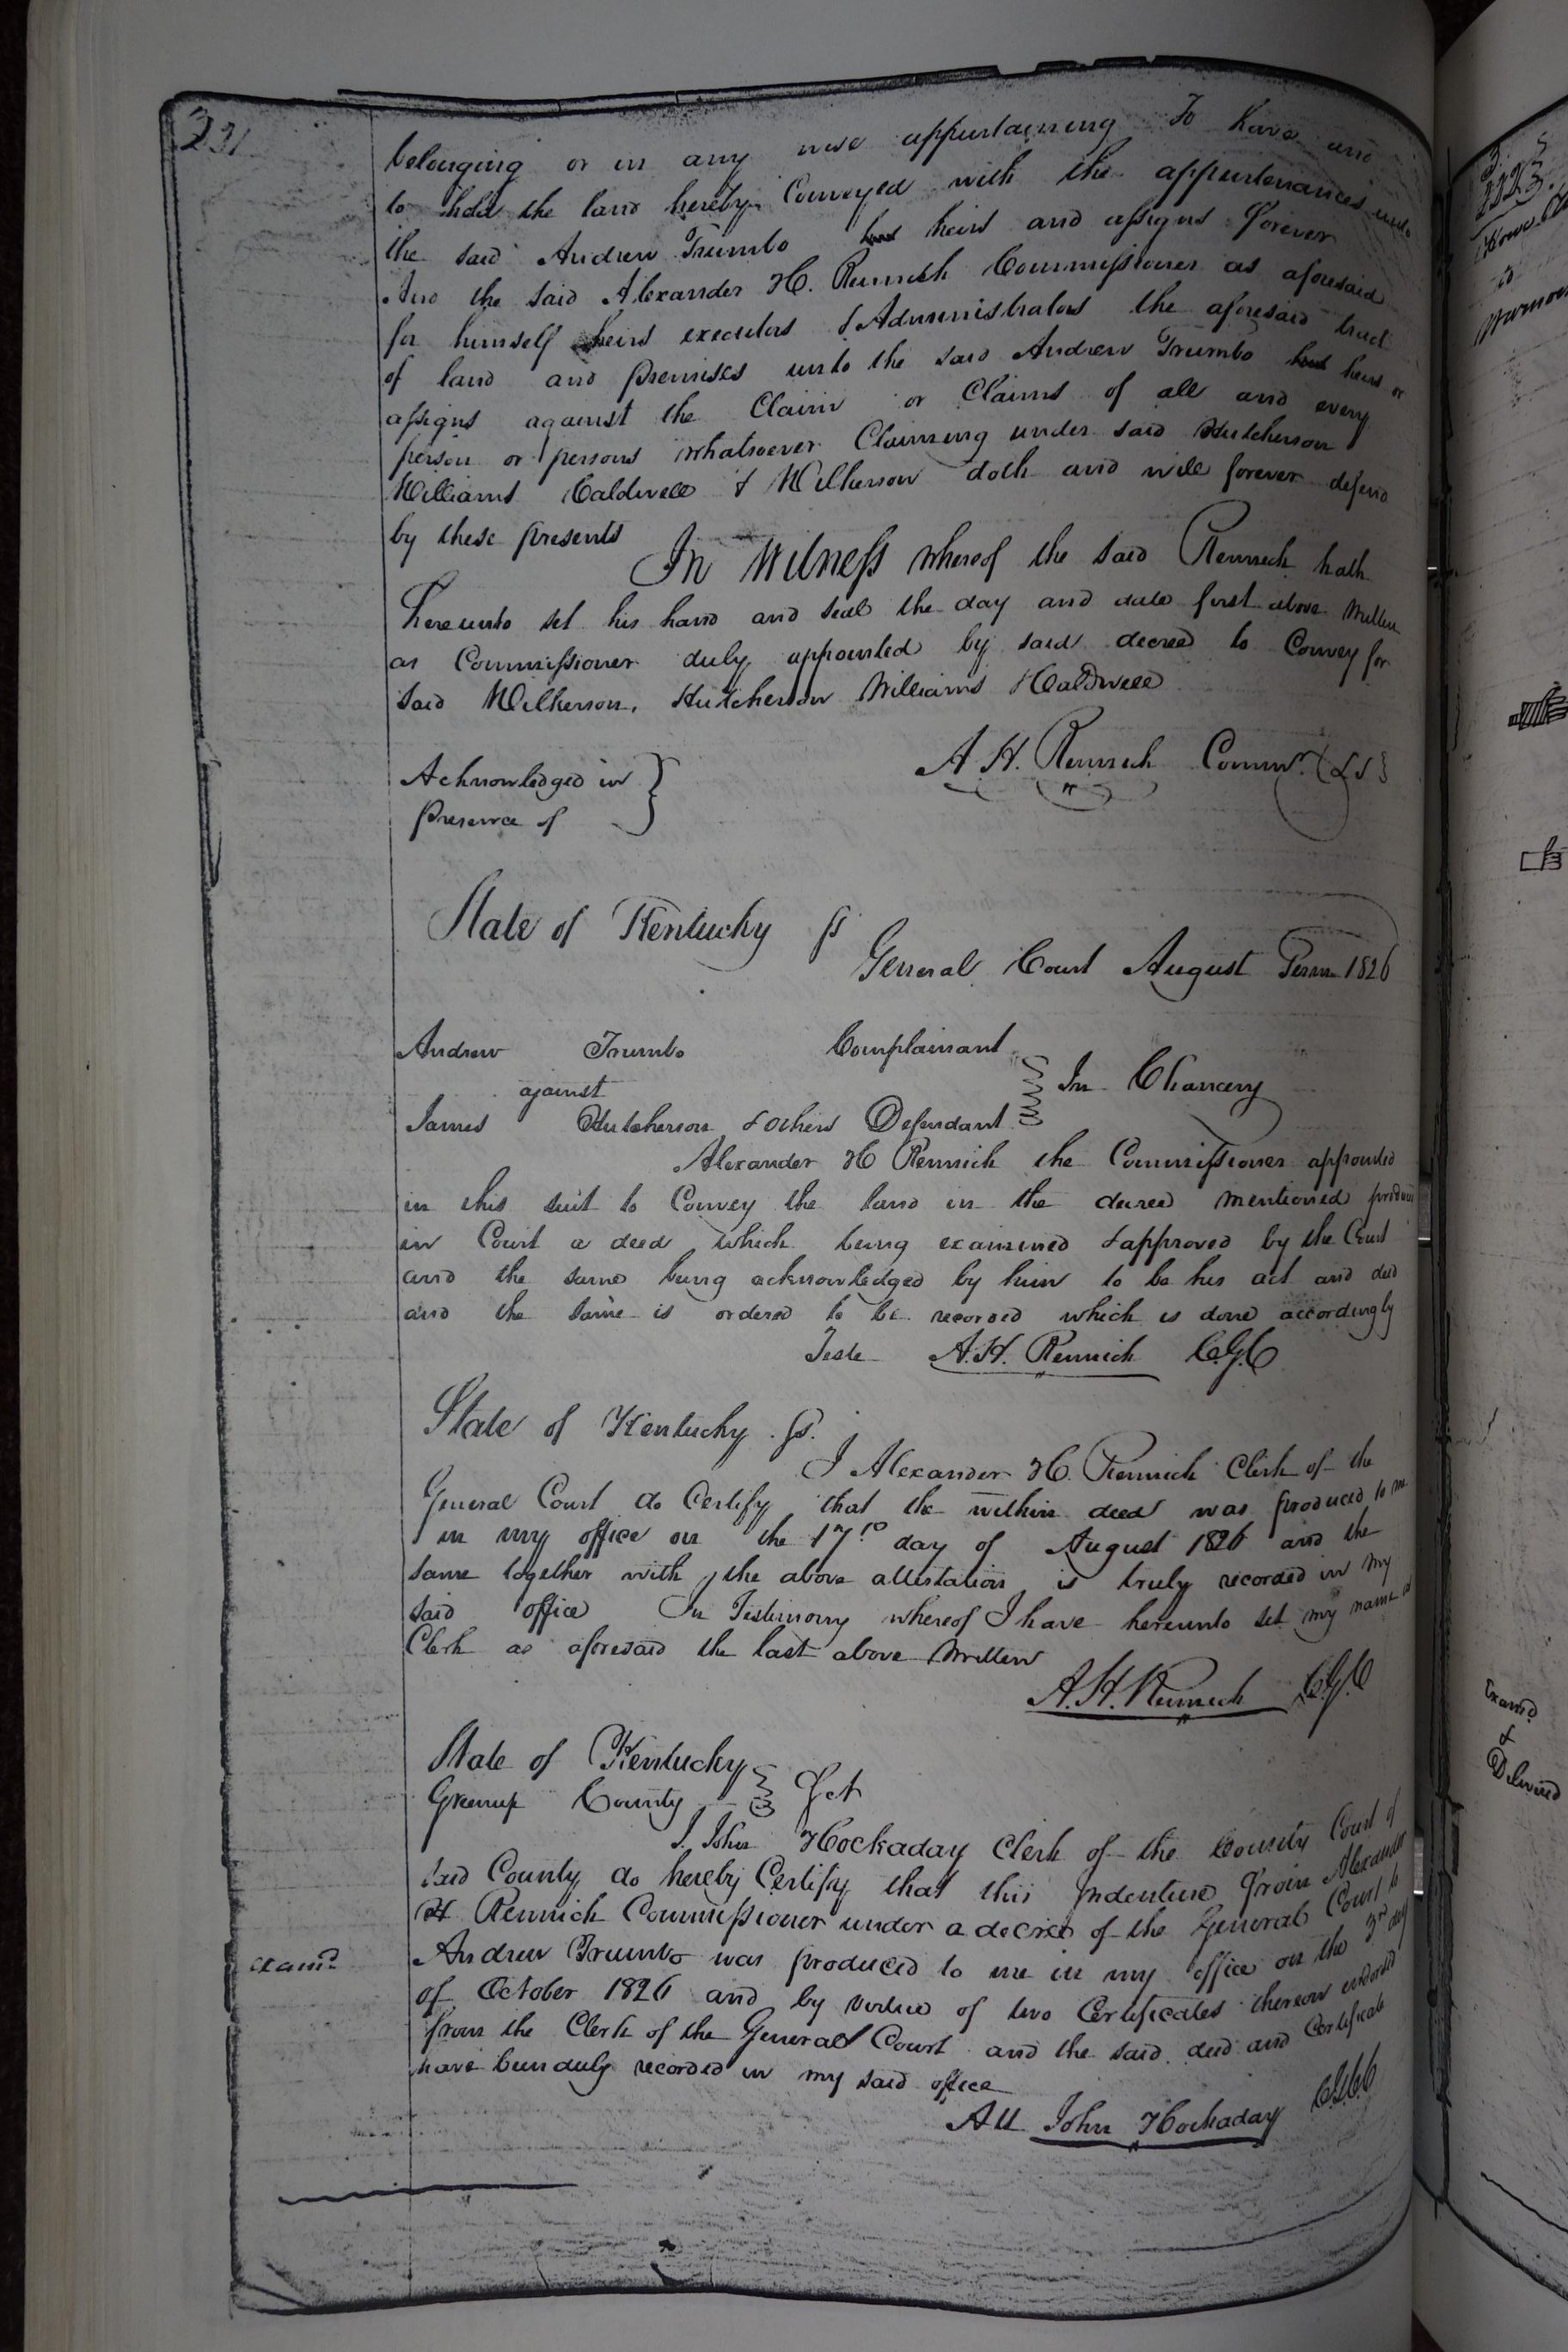 331
belonging or in any wise appurtaining To have and
to hold the land hereby Conveyed with the appurtenances unto
the said Andrew Trumbo heirs and assigns forever
And the said Alexander H. Rennick Commissioner as aforesaid
for himself heirs executors & Administrators the aforesaid tract
of land and premises unto the said Andrew Trumbo heirs or
assigns against the Claim or Claims of all and every
person or persons whatsoever Claiming under said Hutcherson
Williams Caldwell & Wilkerson doth and will forever defend
by these presents
In Witness whereof the said Rennick hath
hereunto set his hand and seal the day and date first above Written
as Commissioner duly appointed by said decree to Convey for
said Wilkerson, Hutcherson Williams & Caldwell
A. H. Rennick Commr. {LS}
Acknowledged in }
presence of
State of Kentucky ss
General Court August Term 1826
Andrew Trumbo Complainant
against } In Chancery
James Hutcherson & others Defendant
Alexander H Rennick the Commissioner appointed
in this suit to Convey the land in the decree mentioned produced
in Court a deed which being examined & approved by the Court
and the same being acknowledged by him to be his act and deed
and the same is ordered to be recorded which is done accordingly
Teste A. H. Rennick C.G.C
State of Kentucky ss.
I Alexander H. Rennick Clerk of the
General Court do Certify that the within deed was produced to me
in my office on the 17th day of August 1826 and the
same together with the above attestation is truly recorded in my
said office In Testimony whereof I have hereunto set my name as
Clerk as aforesaid the last above Written
A. H. Rennick C.G.C
State of Kentucky
Greenup County } Sct
I. John Hockaday Clerk of the County Court of
said County do hereby Certify that this Indenture from Alexander
H Rennick Commissioner under a decree of the General Court to
Andrew Trumbo was produced to me in my office on the 3rd day
of October 1826 and by virtue of two Certificates thereon endorsed
from the Clerk of the General Court and the said deed and Certificate
have been duly recorded in my said office
Att John Hockaday C.G.C.C
Examd.
Examd.
&
Delivered